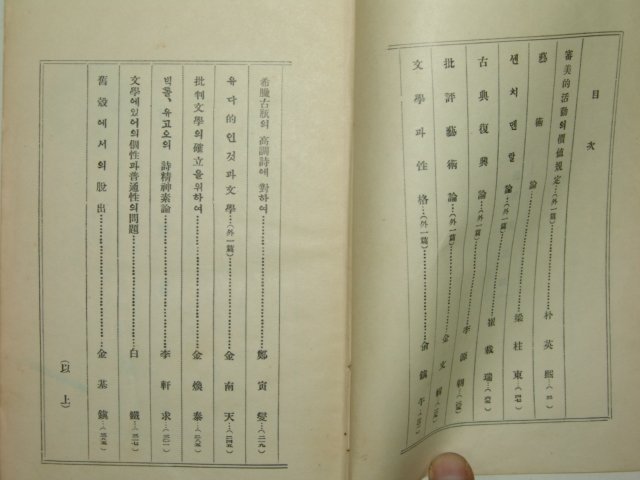 目次
審美的活動의價値規定…(外一篇)…朴英熙
藝術論…梁柱東
센치멘탈論…(外一篇)…崔載瑞
古典復興論…(外一篇)…李源朝
批評藝術論…(外一篇)…金文輯
文學과性格…(外一篇)…兪鎭午
希臘古瓶의高調詩에對하여…鄭寅燮
유다的인것과文學…(外一篇)…金南天
批判文學의確立을위하여…金煥泰
빅톨,유고오의詩精神素論…李軒求
文學에있어의個性과普通性의問題…白鐵
舊殼에서의脫出…金基鎭
(以上)